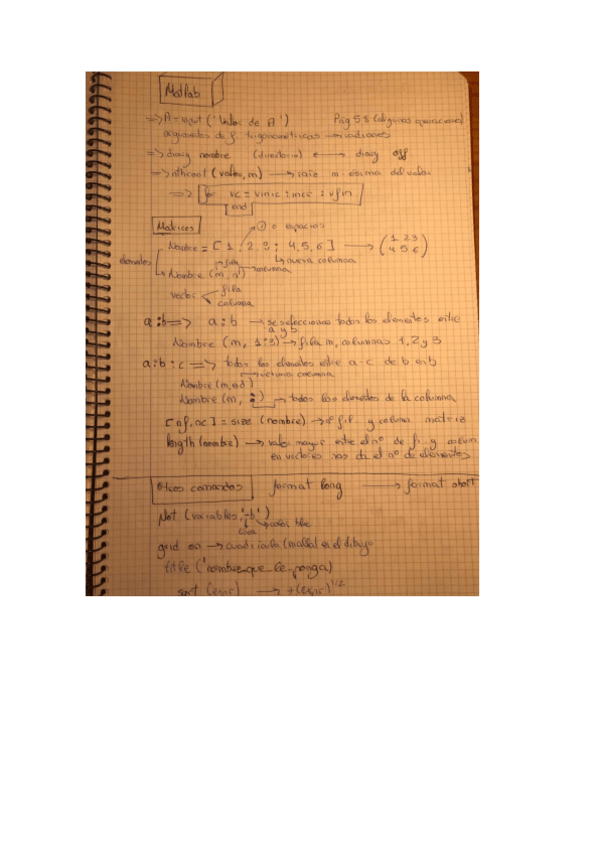 Matlab
=> A = input ('Valor de A')    Pág 58 (algunas operaciones)
argumentos de f. trigonométricas → radianes
=> diary nombre (directorio) ←→ diary off
=> nthroot (valor, m) → raíz m-ésima del valor
=> for vc = vinic : incc : vfin
end
Matrices
① o espacios
Nombre = [ 1, 2, 3 ; 4, 5, 6 ] → (1 2 3
4 5 6)
elementos
fila
nueva columna
Nombre (m, n) columna
vector < fila
columna
a:b => a:b → se seleccionan todos los elementos entre
a y b
Nombre (m, 1:3) → fila m, columnas 1, 2 y 3
a:b:c => todos los elementos entre a-c de b en b
última columna
Nombre (m, end)
Nombre (m, :) → todos los elementos de la columna
[nf, nc] = size (nombre) → nº fil y column matriz
length (nombre) → valor mayor entre el nº de fil y colum
en vectores nos da el nº de elementos
Otros comandos    format long → format short
plot (variables, '-b') → color blue
línea
grid on → cuadrícula (malla) en el dibujo
title ('nombre_que_le_ponga)
sqrt (expr) → +(expr)^1/2